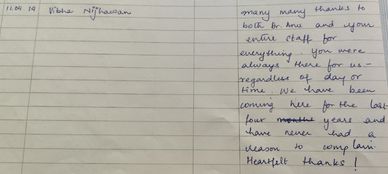 11.04.19 Vibha Nijhawan many many thanks to
both Dr. Anu and your
entire staff for
everything. You were
always there for us -
regardless of day or
time. We have been
coming here for the last
four months years and
have never had a
reason to complain.
Heartfelt thanks!